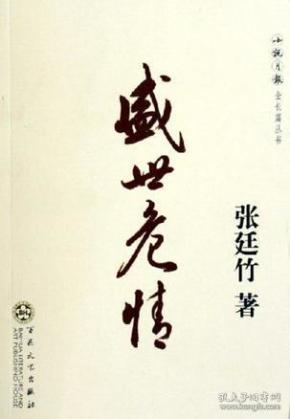 小说月报
金长篇丛书
盛世危情
张廷竹 著
BAIHUA LITERATURE AND
ART PUBLISHING HOUSE
百花文艺出版社
孔夫子旧书网